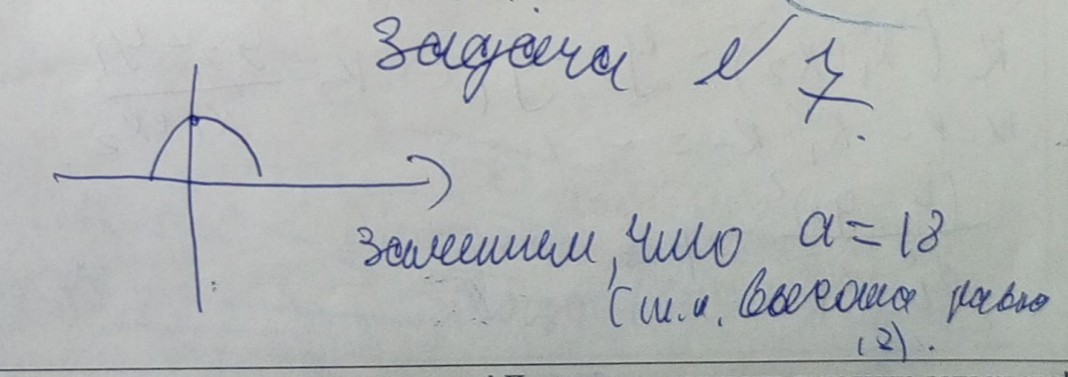 Задача № 7.
Заметим, что a = 18
(т.к. высота равна
18).